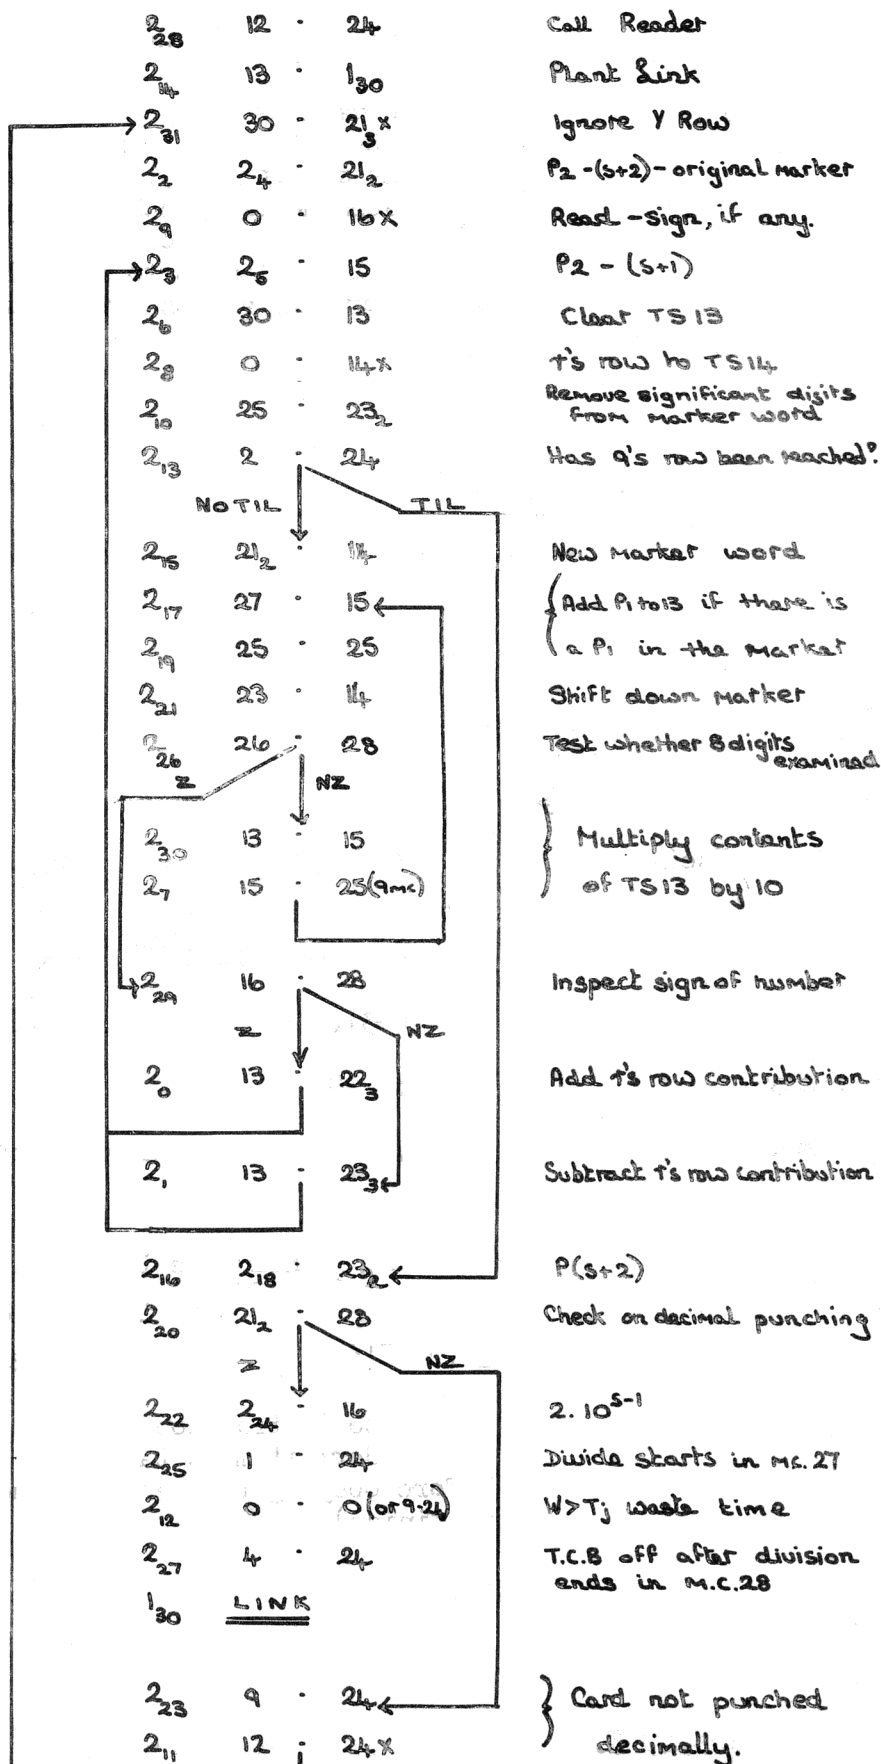 2₂₈ 12 - 24 Call Reader
2₁₄ 13 - 1₃₀ Plant Link
2₃₁ 30 - 21₃ X Ignore Y Row
2₂ 2₄ - 21₂ P₂ -(s+2)- original marker
2₉ 0 - 16 X Read - sign, if any.
2₃ 2₅ - 15 P₂ - (s+1)
2₆ 30 - 13 Clear TS 13
2₈ 0 - 14 X r's row to TS 14
2₁₀ 25 - 23₂ Remove significant digits
from marker word
2₁₃ 2 - 24 Has 9's row been reached?
NO TIL TIL
2₁₅ 21₂ - 14 New marker word
2₁₇ 27 - 15 { Add P₁ to 13 if there is
2₁₉ 25 - 25 a P₁ in the marker
2₂₁ 23 - 14 Shift down marker
2₂₆ 26 - 28 Test whether 8 digits
examined
Z NZ
2₃₀ 13 - 15 } Multiply contents
2₇ 15 - 25 (9mc) of TS 13 by 10
2₂₉ 16 - 28 Inspect sign of number
Z NZ
2₀ 13 - 22₃ Add r's row contribution
2₁ 13 - 23₃ Subtract r's row contribution
2₁₆ 2₁₈ - 23₂ P(s+2)
2₂₀ 21₂ - 28 Check on decimal punching
Z NZ
2₂₂ 2₂₄ - 16 2.10ˢ⁻¹
2₂₅ 1 - 24 Divide starts in mc. 27
2₁₂ 0 - 0 (or 9-24) W>Tj waste time
2₂₇ 4 - 24 T.C.B off after division
ends in M.C.28
1₃₀ LINK
2₂₃ 9 - 24 } Card not punched
2₁₁ 12 - 24 X decimally.